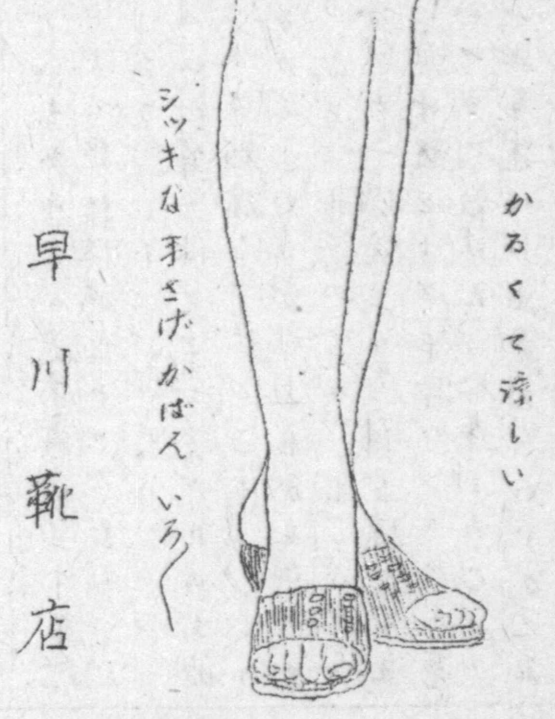 かるくて涼しい
シツキな手さげかばんいろ〱
早川靴店